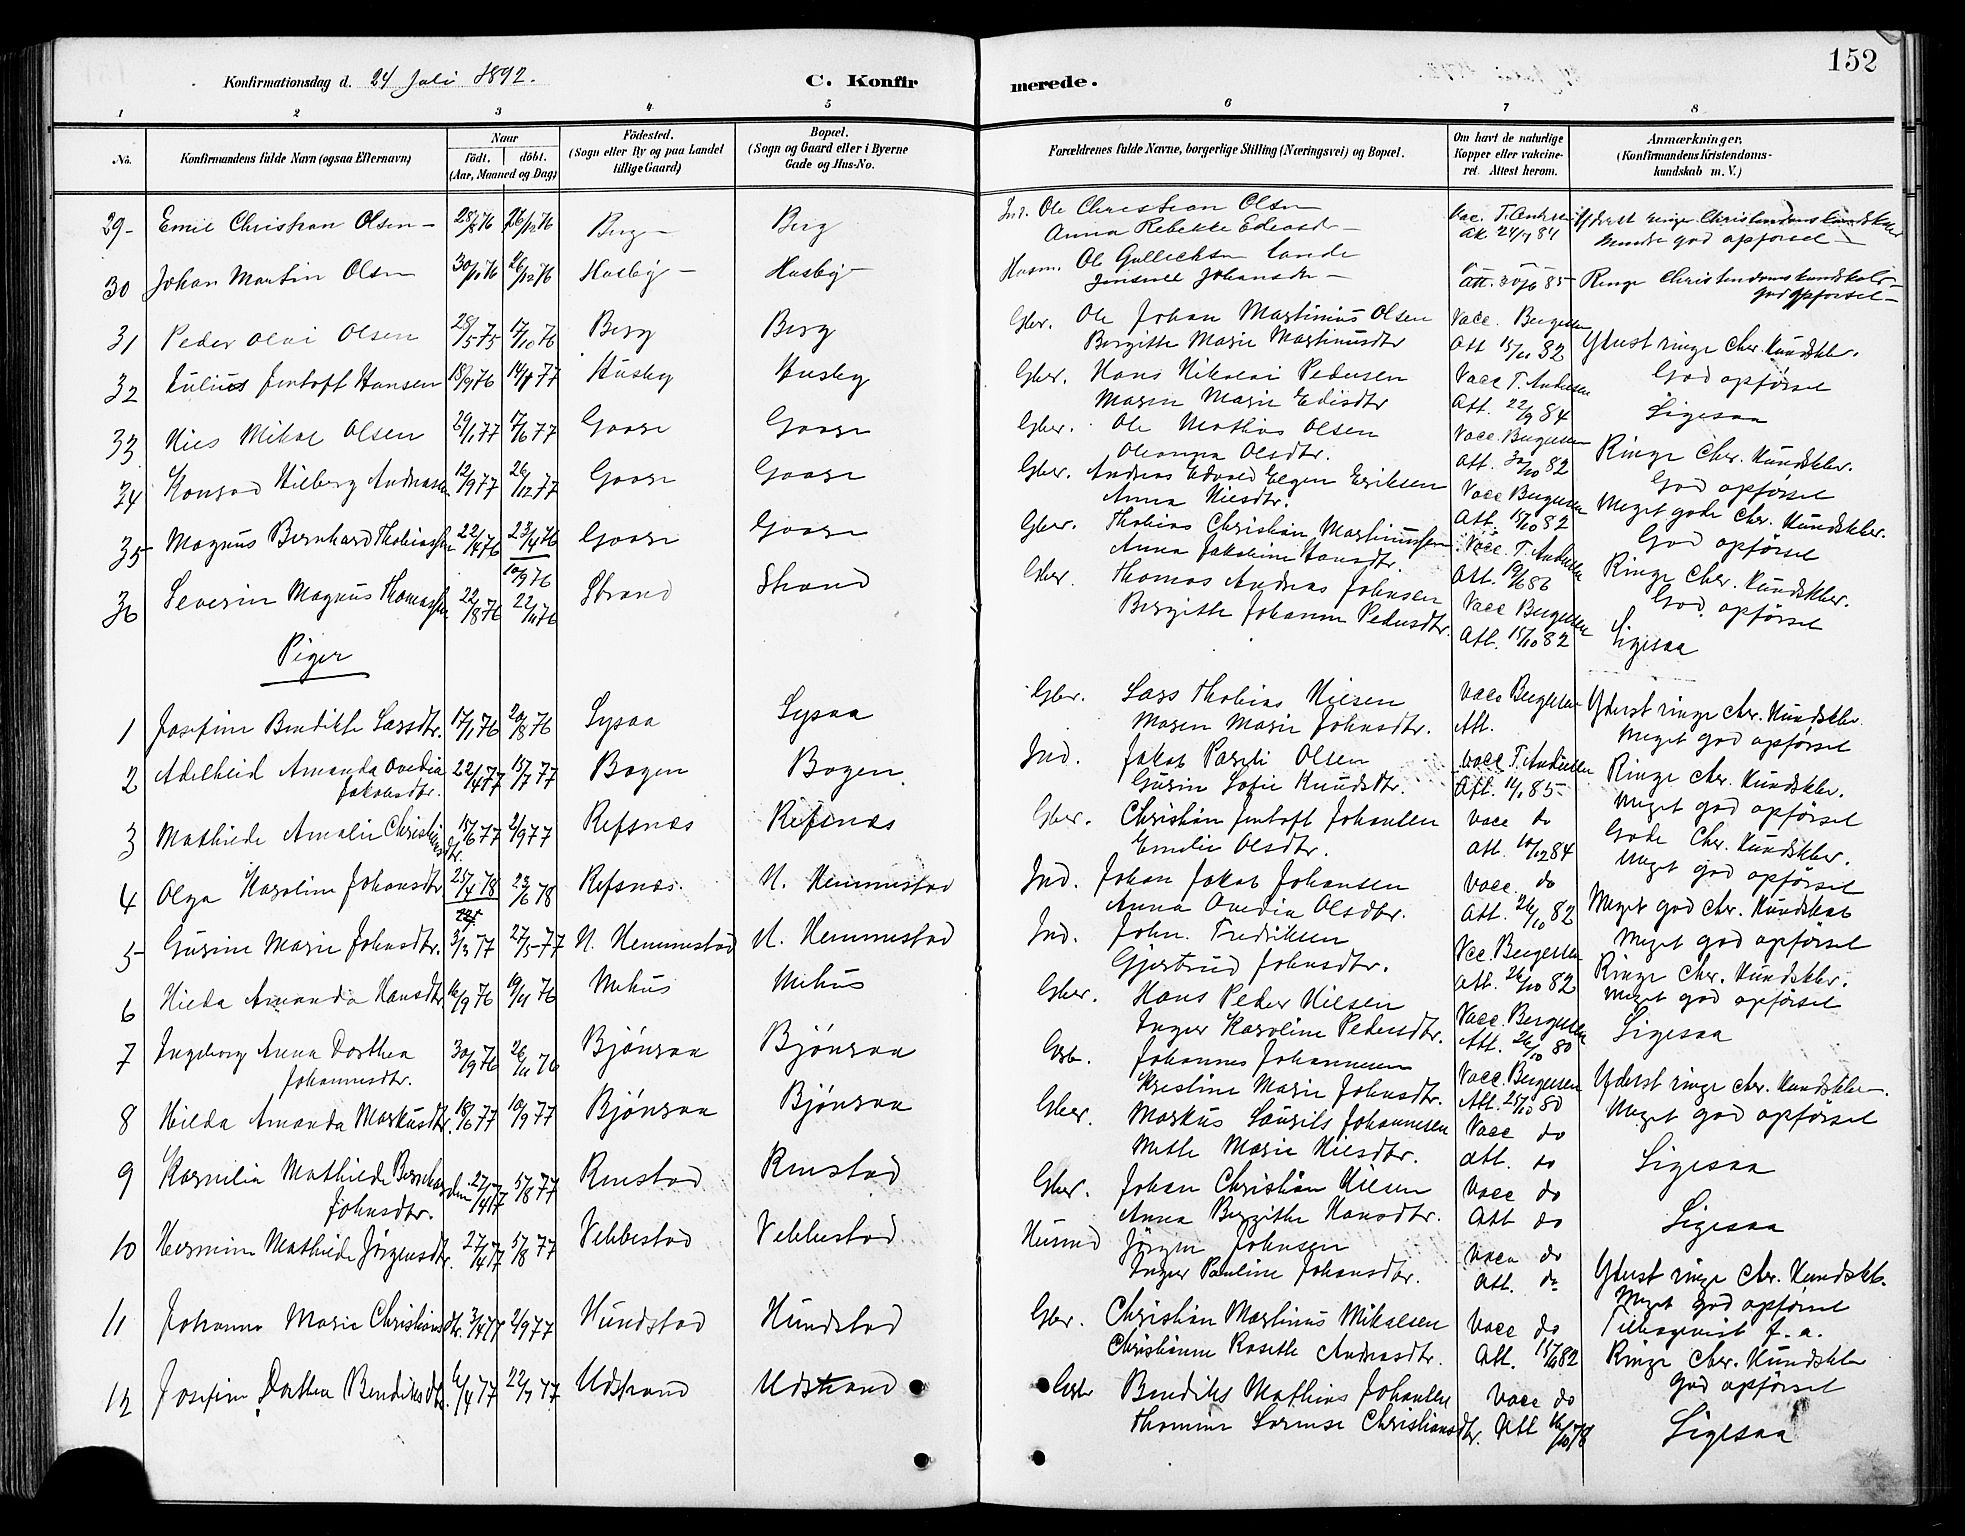 152
Konfirmationsdag d. 24 Juli 1892. C. Konfirmerede.
1 2 3 4 5 6 7 8
No. Konfirmandens fulde Navn (ogsaa Efternavn) Naar født. døbt. (Aar, Maaned og Dag) Födested. (Sogn eller By og paa Landet tillige Gaard) Bopæl. (Sogn og Gaard eller i Byerne Gade og Hus-No. Forældrenes fulde Navne, borgerlige Stilling (Næringsvei) og Bopæl. Om havt de naturlige Kopper eller vakcineret. Attest herom. Anmærkninger, (Konfirmandens Kristendomskundskab m. V.)
29 Emil Christian Olsen 28/8 76 26/12 76 Berg Berg Ind. Ole Christian Olsen
Anna Rebekke
30 Johan Martin Olsen 30/10 76 26/12 76 Husby Husby Husm. Ole Gullichsen Ringe Christendomskundskab
Att. god opførsel
31 Peder Olai Olsen 28/5 75 17/10 76 Berg Berg Gbr. Ole Johan Martinius Olsen Vacc. Bergesen Yderst ringe Chr. Kundskbr.
Birgitte Marie Martinusdtr Att God opførsel
32 Julius Jentoft Hansen 18/9 76 14/1 77 Husby Husby Gbr. Hans Nikolai Pedersen Vacc T. Andersen Ligesaa
Maren Marie Edisdtr Att. 22/9 84
33 Nils Mikal Olsen 29/1 77 17/6 77 Gaare Gaare Gbr. Ole Mathias Olsen Vacc. Bergesen Ringe Chr. Kundskbr.
Oleanna Olsdtr. Att. 30/10 82 God opførsel
34 Konrad Hilberg Andreassen 12/9 77 26/12 77 Gaare Gaare Gbr. Andreas Edvard Elgen Eriksen Vacc Bergesen Meget gode Chr. Kundskbr.
Anna Nilsdtr. Att. 15/10 82 God opførsel
35 Magnus Bernhard Thobiassen 22/4 76 23/4 76 Gaare Gaare Gbr. Thobias Christian Martinussen Vacc. T. Andersen Ringe Chr. Kundskbr.
10/9 76 Anna Jakobine Hansdtr. Att. 19/6 86 God opførsel
36 Severin Magnus Thomassen 22/8 76 22/11 76 Strand Strand Gbr. Thomas Andreas Johnsen Vacc Bergesen Ligesaa
Birgitte Johanna Pedersdtr. Att. 15/10 82
Piger
1 Josefine Bendikte Larsdtr. 17/1 76 20/8 76 Lysaa Lysaa Gbr. Lars Thobias Nilsen Vacc Bergesen Yderst ringe Chr. Kundskbr.
Maren Marie Johnsdtr. Att. Meget god opførsel
2 Adelheid Amanda Ovedia 22/4 77 15/7 77 Bogen Bogen Ind. Jakob Pareli Olsen Vacc T. Andersen Ringe Chr. Kundskbr.
Jakobsdtr. Gurin Sofie Knudsdtr. Att. 11/1 85 Meget god opførsel
3 Mathilde Amalie Christiansdtr. 15/6 77 2/9 77 Refsnæs Refsnæs Gbr. Christian Jentoft Johansen Vacc do Gode Chr. Kundskbr.
Emelie Olsdtr. Att. 10/12 84 Meget god opførsel
4 Olga Karoline Johansdtr 25/4 78 23/6 78 Refsnæs. N. Hemmestad Ind. Johan Jakob Johansen Vacc. do Meget god Chr. Kundskab
Anna Ovedia Olsdtr. Att. 26/10 82 Meget god opførsel
5 Gurine Marie Johnsdtr. 3/3 77 27/5 77 N. Hemmestad N. Hemmestad Ind. John Fredriksen Vcc. Bergesen Ringe Chr. Kundskbr.
Gjertrud Johnsdtr. Att. 26/10 82 Meget god opførsel
6 Hilda Amanda Hansdtr. 16/9 76 19/11 76 Melhus Melhus Gbr. Hans Peder Nilsen Vacc. Bergesen Ligesaa
Inger Karoline Pedersdtr. Att. 26/10 80
7 Ingeborg Anna Dorthea 30/9 76 26/11 76 Bjönraa Bjönraa Gbr. Johannes Johannesen Vacc Bergesen Yderst ringe Chr. Kundskbr.
Johannesdtr. Kristine Marie Johnsdtr. Att. 25/10 80 Meget god opførsel
8 Hilda Amanda Markusdtr. 18/6 77 10/9 77 Bjönraa Bjönraa Gbr. Markus Laurits Johannesen Vacc do Ligesaa
Mette Marie Nilsdtr. Att. do
9 Kornilia Mathilde Bernhardine 27/4 77 5/8 77 Rinstad Rinstad Gbr. Johan Christian Nilsen Vacc do Ligesaa
Johnsdtr. Anna Birgitte Hansdtr. Att do
10 Hermine Mathilde Jörgensdtr. 27/4 77 5/8 77 Vebbestad Vebbestad Husmd Jörgen Johnsen Vacc do Yderst ringe Chr. Kundskb.
Inger Pauline Johansdtr. Att. do Meget god opførsel
11 Johanna Marie Christiansdtr. 3/4 77 2/9 77 Hundstad Hundstad Gbr. Christian Martinus Mikalsen Vacc do Tilbagevist f. a.
Christianne Rosette Andreasdtr. Att. 15/10 82 Ringe Chr. Kundskbr
God opførsel
12 Josefine Dorthea Bendiksdtr. 6/4 77 22/7 77 Udstrand Udstrand Gbr Bendiks Mathias Johansen Vacc do Ligesaa
Thomine Lorense Christiansdtr. Att 16/10 78